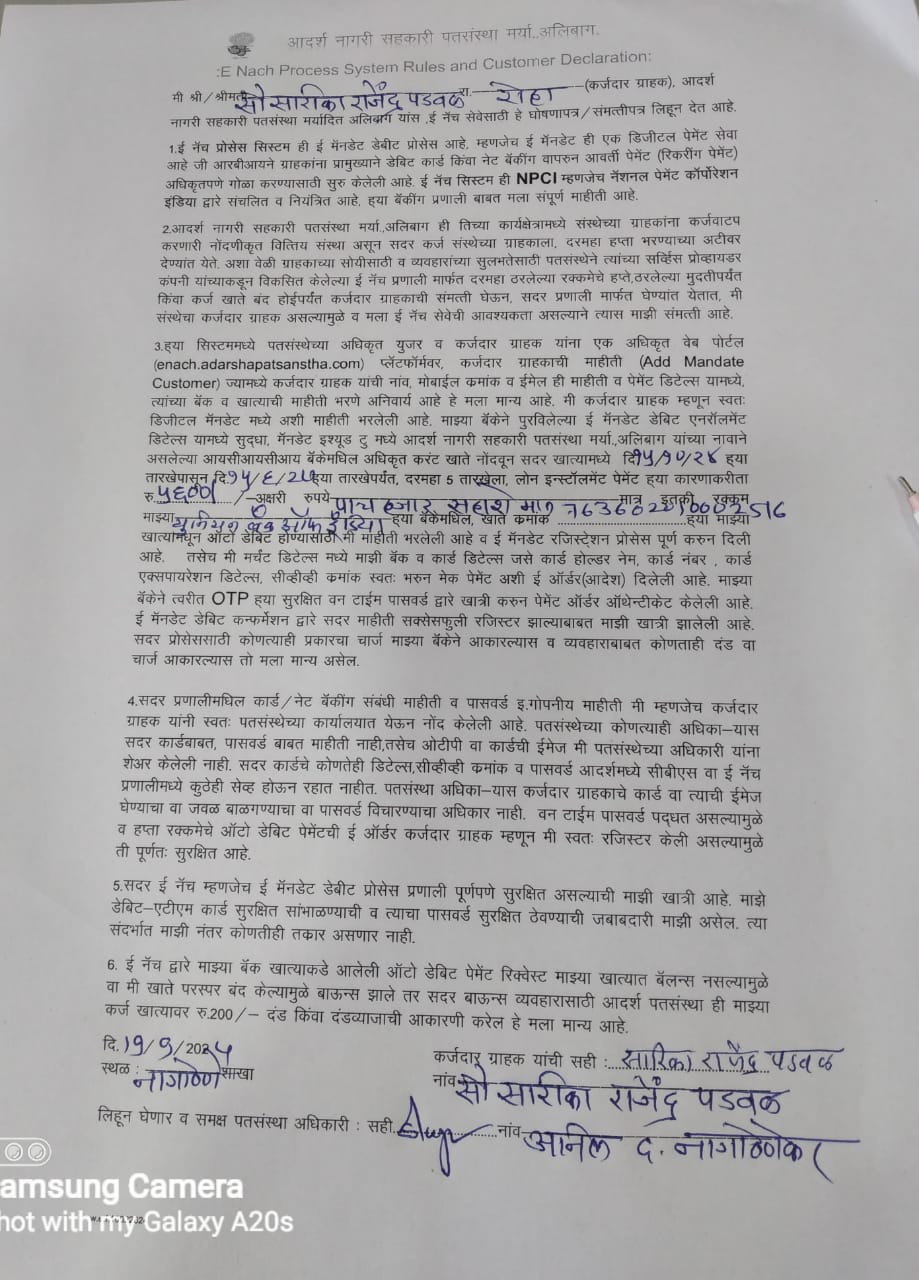 आदर्श नागरी सहकारी पतसंस्था मर्या..अलिबाग.
:E Nach Process System Rules and Customer Declaration:
मी श्री/श्रीमती सौ सारीका राजेंद्र पडवळ रा. रोहा (कर्जदार ग्राहक), आदर्श
नागरी सहकारी पतसंस्था मर्यादित अलिबाग यांस ,ई नॅच सेवेसाठी हे घोषणापत्र/संमत्तीपत्र लिहून देत आहे.
1.ई नॅच प्रोसेस सिस्टिम ही ई मॅनडेट डेबीट प्रोसेस आहे. म्हणजेच ई मॅनडेट ही एक डिजीटल पेमेंट सेवा
आहे जी आरबीआयने ग्राहकांना प्रामुख्याने डेबिट कार्ड किंवा नेट बॅकींग वापरुन आवर्ती पेमेंट (रिकरींग पेमेंट)
अधिकृतपणे गोळा करण्यासाठी सुरु केलेली आहे. ई नॅच सिस्टिम ही NPCI म्हणजेच नॅशनल पेमेंट कॉर्पोरेशन
इंडिया द्वारे संचलित व नियंत्रित आहे, ह्या बॅकींग प्रणाली बाबत मला संपूर्ण माहीती आहे.
2.आदर्श नागरी सहकारी पतसंस्था मर्या.,अलिबाग ही तिच्या कार्यक्षेत्रामध्ये संस्थेच्या ग्राहकांना कर्जवाटप
करणारी नोंदणीकृत वित्तिय संस्था असून सदर कर्ज संस्थेच्या ग्राहकाला, दरमहा हप्ता भरण्याच्या अटीवर
देण्यांत येते. अशा वेळी ग्राहकाच्या सोयीसाठी व व्यवहारांच्या सुलभतेसाठी पतसंस्थेने त्यांच्या सर्व्हिस प्रोव्हायडर
कंपनी यांच्याकडून विकसित केलेल्या ई नॅच प्रणाली मार्फत दरमहा ठरलेल्या रक्कमेचे हप्ते,ठरलेल्या मुदतीपर्यंत
किंवा कर्ज खाते बंद होईपर्यंत कर्जदार ग्राहकाची संमत्ती घेऊन, सदर प्रणाली मार्फत घेण्यांत येतात, मी
संस्थेचा कर्जदार ग्राहक असल्यामुळे व मला ई नॅच सेवेची आवश्यकता असल्याने त्यास माझी संमत्ती आहे.
3.ह्या सिस्टिममध्ये पतसंस्थेच्या अधिकृत युजर व कर्जदार ग्राहक यांना एक अधिकृत वेब पोर्टल
(enach.adarshapatsanstha.com) प्लॅटफॉर्मवर, कर्जदार ग्राहकाची माहीती (Add Mandate
Customer) ज्यामध्ये कर्जदार ग्राहक यांची नांव, मोबाईल कमांक व ईमेल ही माहीती व पेमेंट डिटेल्स यामध्ये,
त्यांच्या बॅक व खात्याची माहीती भरणे अनिवार्य आहे हे मला मान्य आहे. मी कर्जदार ग्राहक म्हणून स्वतः
डिजीटल मॅनडेट मध्ये अशी माहीती भरलेली आहे. माझ्या बॅकेने पुरविलेल्या ई मॅनडेट डेबिट एनरॉलमेंट
डिटेल्स यामध्ये सुद्धा, मॅनडेट इश्यूड टु मध्ये आदर्श नागरी सहकारी पतसंस्था मर्या.,अलिबाग यांच्या नावाने
असलेल्या आयसीआयसीआय बॅकेमधिल अधिकृत करंट खाते नोंदवून सदर खात्यामध्ये दि.१५/१०/२४ ह्या
तारखेपासून दि.१५/६/ ह्या तारखेपर्यंत, दरमहा 5 तारखेला, लोन इन्स्टॉलमेंट पेमेंट ह्या कारणाकरीता
रु ५६००/ /–अक्षरी रुपये पाच हजार सहाशे मात्र मात्र इतकी रक्कम
माझ्या युनियन बँक ऑफ इंडिया ह्या बॅकेमधिल, खाते कमांक ह्या माझ्या
खात्यामधून ऑटो डेबिट होण्यासाठी मी माहीती भरलेली आहे व ई मॅनडेट रजिस्ट्रेशन प्रोसेस पूर्ण करुन दिली
आहे. तसेच मी मर्चंट डिटेल्स मध्ये माझी बॅक व कार्ड डिटेल्स जसे कार्ड होल्डर नेम, कार्ड नंबर , कार्ड
एक्सपायरेशन डिटेल्स, सीव्हीव्ही कमांक स्वतः भरुन मेक पेमेंट अशी ई ऑर्डर(आदेश) दिलेली आहे. माझ्या
बॅकेने त्वरीत OTP ह्या सुरक्षित वन टाईम पासवर्ड द्वारे खात्री करुन पेमेंट ऑर्डर ऑथेन्टीकेट केलेली आहे.
ई मॅनडेट डेबिट कन्फर्मेशन द्वारे सदर माहीती सक्सेसफुली रजिस्टर झाल्याबाबत माझी खात्री झालेली आहे.
सदर प्रोसेससाठी कोणत्याही प्रकारचा चार्ज माझ्या बॅकेने आकारल्यास व व्यवहाराबाबत कोणताही दंड वा
चार्ज आकारल्यास तो मला मान्य असेल.
4.सदर प्रणालीमधिल कार्ड/नेट बॅकींग संबंधी माहीती व पासवर्ड इ.गोपनीय माहीती मी म्हणजेच कर्जदार
ग्राहक यांनी स्वतः पतसंस्थेच्या कार्यालयात येऊन नोंद केलेली आहे. पतसंस्थेच्या कोणत्याही अधिका–यास
सदर कार्डबाबत, पासवर्ड बाबत माहीती नाही,तसेच ओटीपी वा कार्डची ईमेज मी पतसंस्थेच्या अधिकारी यांना
शेअर केलेली नाही. सदर कार्डचे कोणतेही डिटेल्स,सीव्हीव्ही कमांक व पासवर्ड आदर्शमध्ये सीबीएस वा ई नॅच
प्रणालीमध्ये कुठेही सेव्ह होऊन राहात नाहीत. पतसंस्था अधिका–यास कर्जदार ग्राहकाचे कार्ड वा त्याची ईमेज
घेण्याचा वा जवळ बाळगण्याचा वा पासवर्ड विचारण्याचा अधिकार नाही. वन टाईम पासवर्ड पद्धत असल्यामुळे
व हप्ता रक्कमेचे ऑटो डेबिट पेमेंटची ई ऑर्डर कर्जदार ग्राहक म्हणून मी स्वतः रजिस्टर केली असल्यामुळे
ती पूर्णतः सुरक्षित आहे.
5.सदर ई नॅच म्हणजेच ई मॅनडेट डेबीट प्रोसेस प्रणाली पूर्णपणे सुरक्षित असल्याची माझी खात्री आहे. माझे
डेबिट–एटीएम कार्ड सुरक्षित सांभाळण्याची व त्याचा पासवर्ड सुरक्षित ठेवण्याची जबाबदारी माझी असेल. त्या
संदर्भात माझी नंतर कोणतीही तकार असणार नाही.
6. ई नॅच द्वारे माझ्या बॅक खात्याकडे आलेली ऑटो डेबिट पेमेंट रिक्वेस्ट माझ्या खात्यात बॅलन्स नसल्यामुळे
वा मी खाते परस्पर बंद केल्यामुळे बाऊन्स झाले तर सदर बाऊन्स व्यवहारासाठी आदर्श पतसंस्था ही माझ्या
कर्ज खात्यावर रु.200/– दंड किंवा दंडव्याजाची आकारणी करेल हे मला मान्य आहे.
दि.19/9/202
स्थळ : नागोठणे शाखा
कर्जदार ग्राहक यांची सही : सारिका राजेंद्र पडवळ
नांव सौ सारीका राजेंद्र पडवळ
लिहून घेणार व समक्ष पतसंस्था अधिकारी : सही नांव अनिल द. नागोठणेकर
amsung Camera
hot with my Galaxy A20s